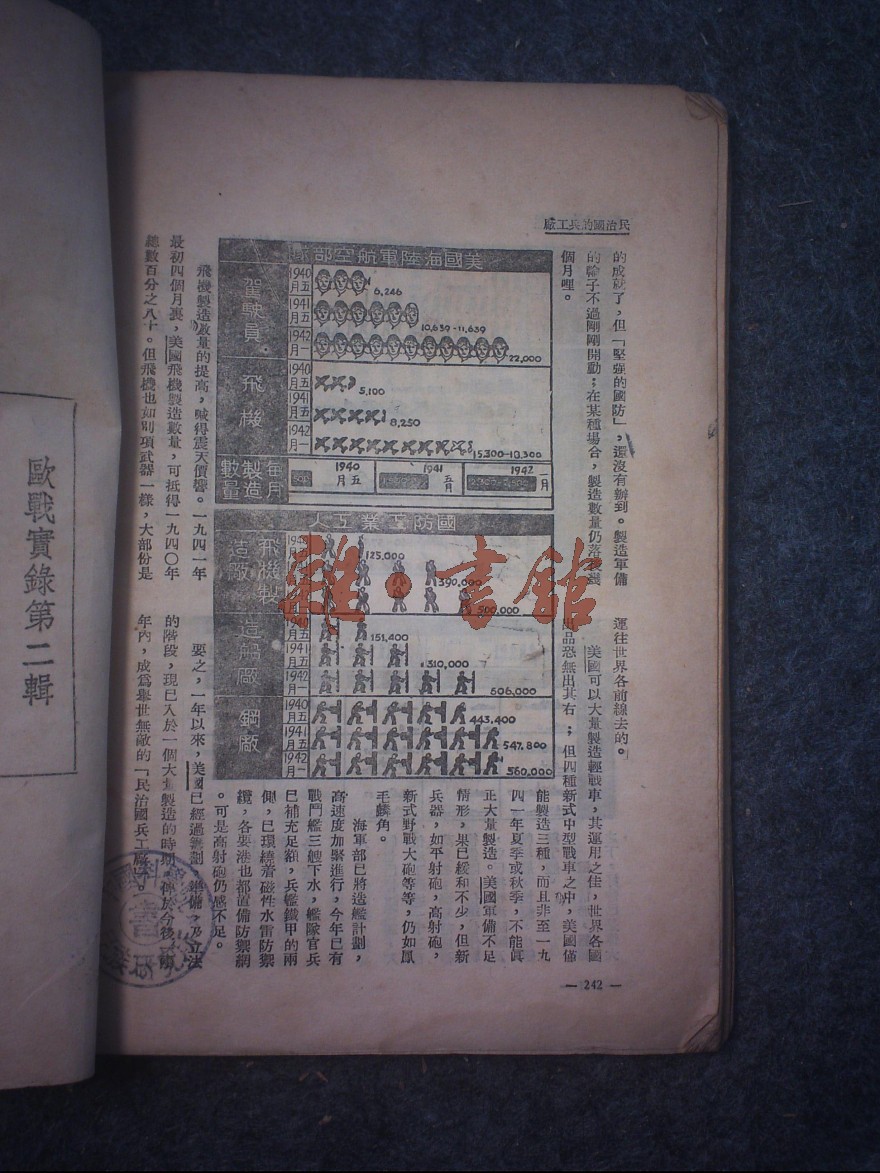 民治國的兵工廠
的成就了，但「堅強的國防」，還沒有辦到。製造軍備
的輪子不過剛剛開動；在某種場合，製造數量仍落後幾
個月哩。
美國海陸軍航空部隊
駕駛員
1940五月 6,246
1941五月 10,639-11,639
1942一月 22,000
飛機
1940五月 5,100
1941五月 8,250
1942一月 15,300-18,300
每月製造數量
1940五月
1941五月
1942一月
國防工業工人
飛機製造廠
125,000
390,000
500,000
造船廠
1940五月 151,400
1941五月 310,000
1942一月 506,000
鋼廠
1940五月 443,400
1941五月 547,800
1942一月 560,000
飛機製造數量的提高，喊得震天價響。一九四一年
最初四個月裏，美國飛機製造數量，可抵得一九四〇年
總數百分之八十。但飛機也如別項武器一樣，大部份是
運往世界各前線去的。
美國可以大量製造輕戰車，其運用之佳，世界各國
出品恐無出其右；但四種新式中型戰車之中，美國僅
能製造三種，而且非至一九
四一年夏季或秋季，不能眞
正大量製造。美國軍備不足
情形，果已緩和不少，但新
兵器，如平射砲，高射砲，
新式野戰大砲等等，仍如鳳
毛麟角。
海軍部已將造艦計劃，
高速度加緊進行，今年已有
戰鬥艦三艘下水，艦隊官兵
已補充足額，兵艦鐵甲的兩
側，已環繞着磁性水雷防禦
纜，各要港也都置備防禦網
。可是高射砲仍感不足。
要之，一年以來，美國已經過籌劃，準備，及立法
的階段，現已入於一個大量製造的時期，俾於今後
年內，成爲舉世無敵的「民治國兵工廠」。
— 242 —
歐戰實錄第二輯
雜·書館